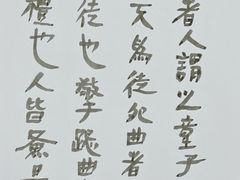 者人謂之童子
天為徒外曲者
徒也擎跽曲
禮也人皆為